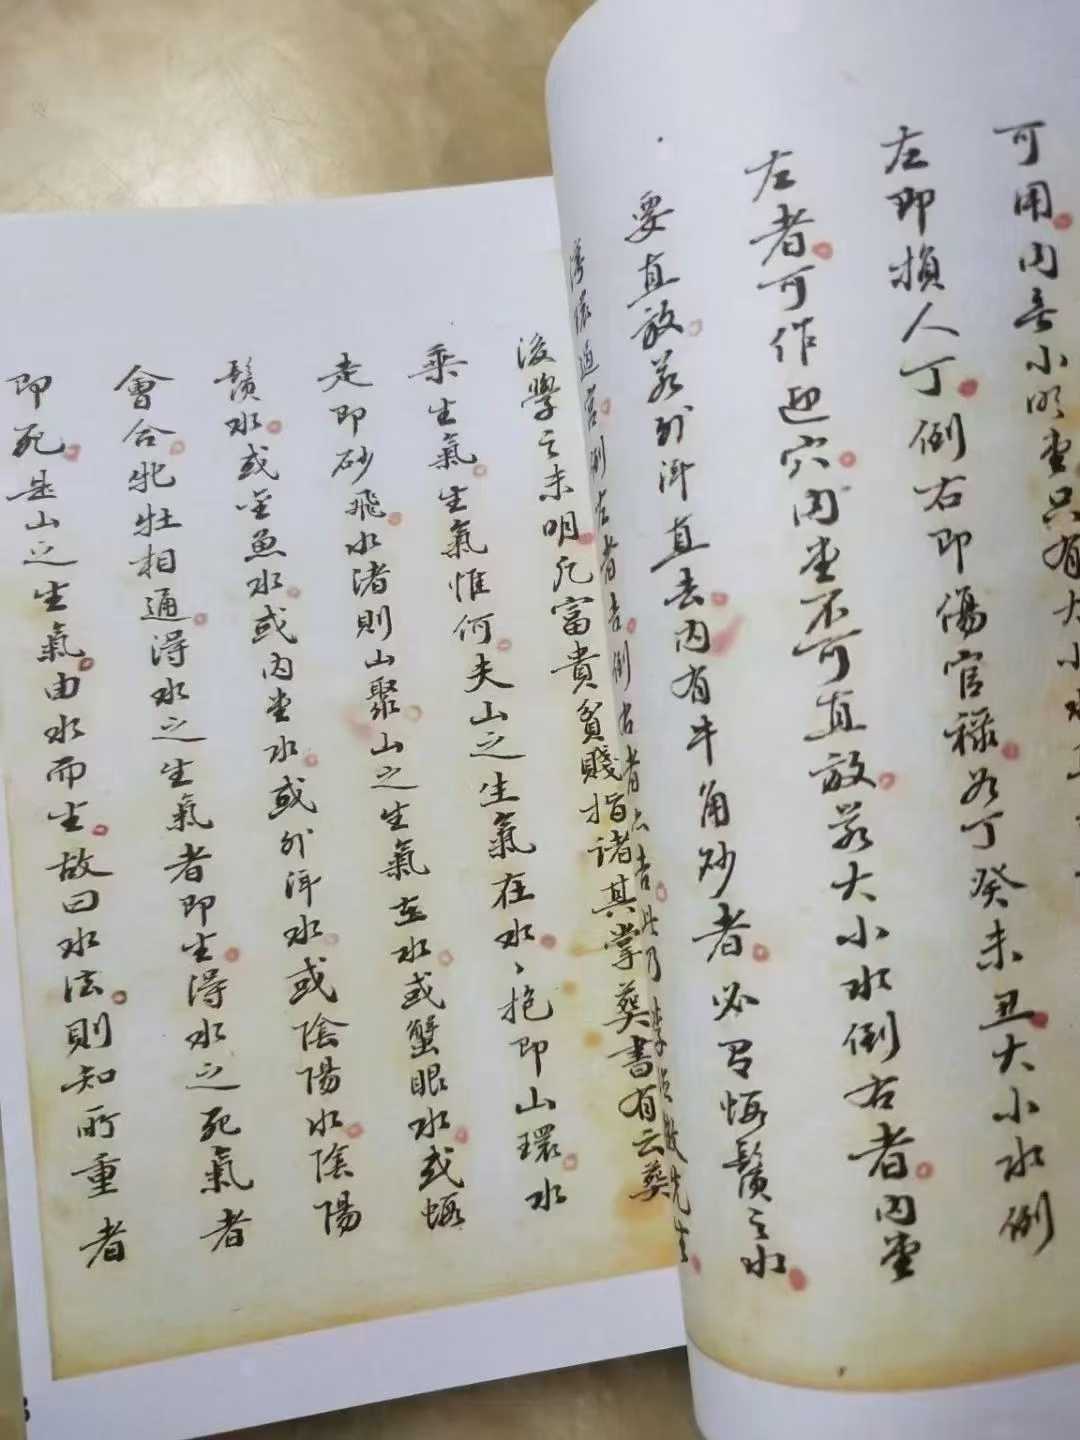 可用内无小明堂只有大小水
左即損人丁倒右即傷官祿若丁癸未丑大小水倒
左者可作迎穴内堂不可直放若大小水倒右者内堂
要直放若外洋直去内有牛角砂者必有蝦鬚之水
倒左者吉倒右者亦吉此乃 先生
後學之未明凡富貴貧賤指諸其掌葬書有云葬
乘生氣生氣惟何夫山之生氣在水、抱即山環水
走即砂飛水渚則山聚山之生氣在水或蟹眼水或蝦
鬚水或金魚水或内堂水或外洋水或陰陽水陰陽
會合牝牡相通得水之生氣者即生得水之死氣者
即死是山之生氣由水而生故曰水法則知所重者